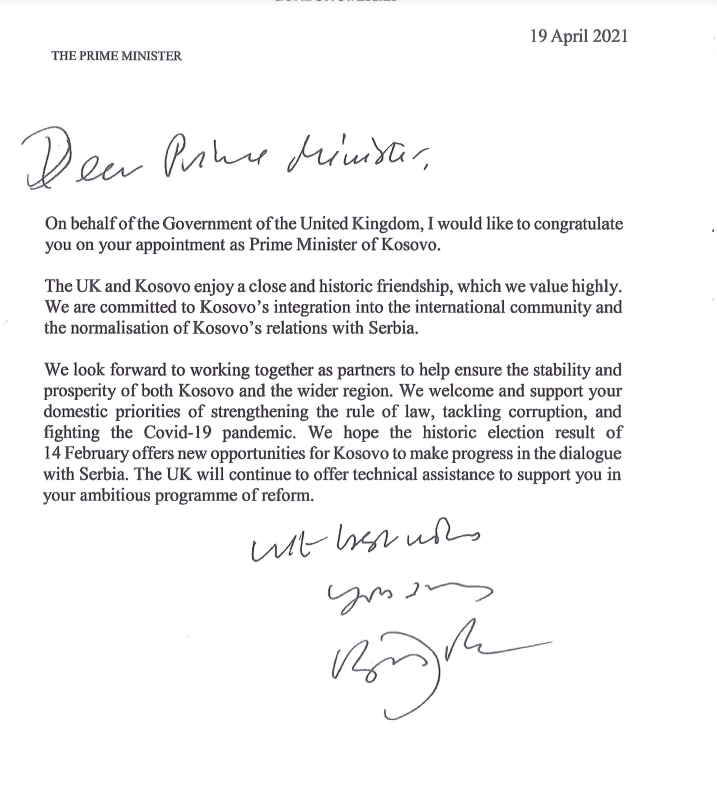 19 April 2021
THE PRIME MINISTER
Dear Prime Minister,
On behalf of the Government of the United Kingdom, I would like to congratulate
you on your appointment as Prime Minister of Kosovo.
The UK and Kosovo enjoy a close and historic friendship, which we value highly.
We are committed to Kosovo's integration into the international community and
the normalisation of Kosovo's relations with Serbia.
We look forward to working together as partners to help ensure the stability and
prosperity of both Kosovo and the wider region. We welcome and support your
domestic priorities of strengthening the rule of law, tackling corruption, and
fighting the Covid-19 pandemic. We hope the historic election result of
14 February offers new opportunities for Kosovo to make progress in the dialogue
with Serbia. The UK will continue to offer technical assistance to support you in
your ambitious programme of reform.
with best wishes